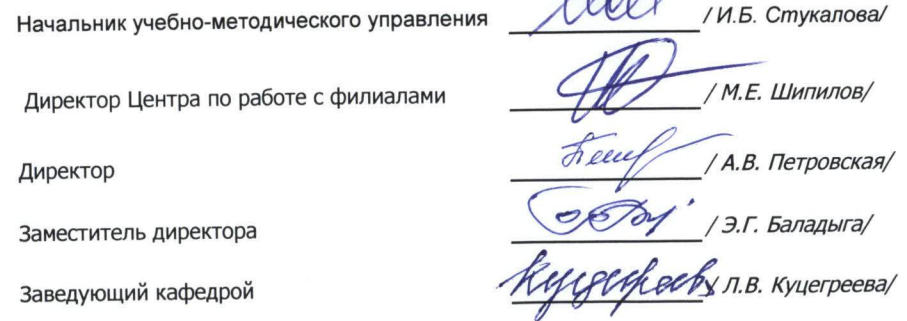 Начальник учебно-методического управления / И.Б. Стукалова/
Директор Центра по работе с филиалами / М.Е. Шипилов/
Директор / А.В. Петровская/
Заместитель директора / Э.Г. Баладыга/
Заведующий кафедрой / Л.В. Куцегреева/